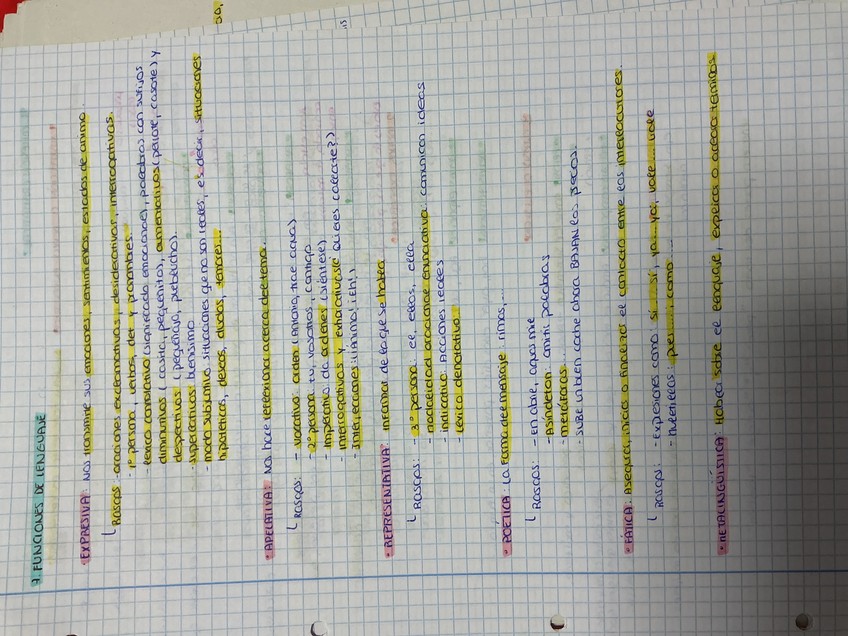 7. FUNCIONES DE LENGUAJE
• EXPRESIVA: Nos transmite sus emociones, sentimientos, estados de ánimo.
Rasgos: oraciones exclamativas, desiderativas, interrogativas.
- 1ª persona verbos, det y pronombres.
- Léxico connotativo (significado emocional), palabras con sufijos
diminutivos (casita, pequeñito), aumentativos (perrote, casote) y
despectivos (pequeñajo, pueblucho).
- Superlativos: buenísimo
- modo subjuntivo: situaciones que no son reales, es decir, situaciones
hipotéticas, deseos, dudas, temores...
• APELATIVA: Nos hace reflexionar acerca del tema.
Rasgos: - Vocativo: orden (Antonia, trae agua)
- 2ª persona: tú, vosotros, contigo
- Imperativo: da órdenes (siéntese)
- interrogativas y exhortativas (¿Quieres callarte?)
- Interjecciones: (¡Ánimo! ¡Eh!)
• REPRESENTATIVA: informar de lo que se habla
Rasgos: - 3ª persona: él, ellos, ella
- modalidad oracional enunciativa: comunican ideas
- Indicativo: Acciones reales
- Léxico denotativo.
• POÉTICA: La forma del mensaje: rimas,...
Rasgos: - En able, capaz me
- Asíndeton: omitir palabras
- metáforas...
- Sube un bien coche ahora BAJAN los pecos.
• FÁTICA: Asegura, inicia o finaliza el contacto entre los interlocutores.
Rasgos: - Expresiones como: sí... sí, ya... ya, vale... vale
- Muletillas: pues..., como...
• METALINGÜÍSTICA: Habla sobre el lenguaje, explica o aclara términos